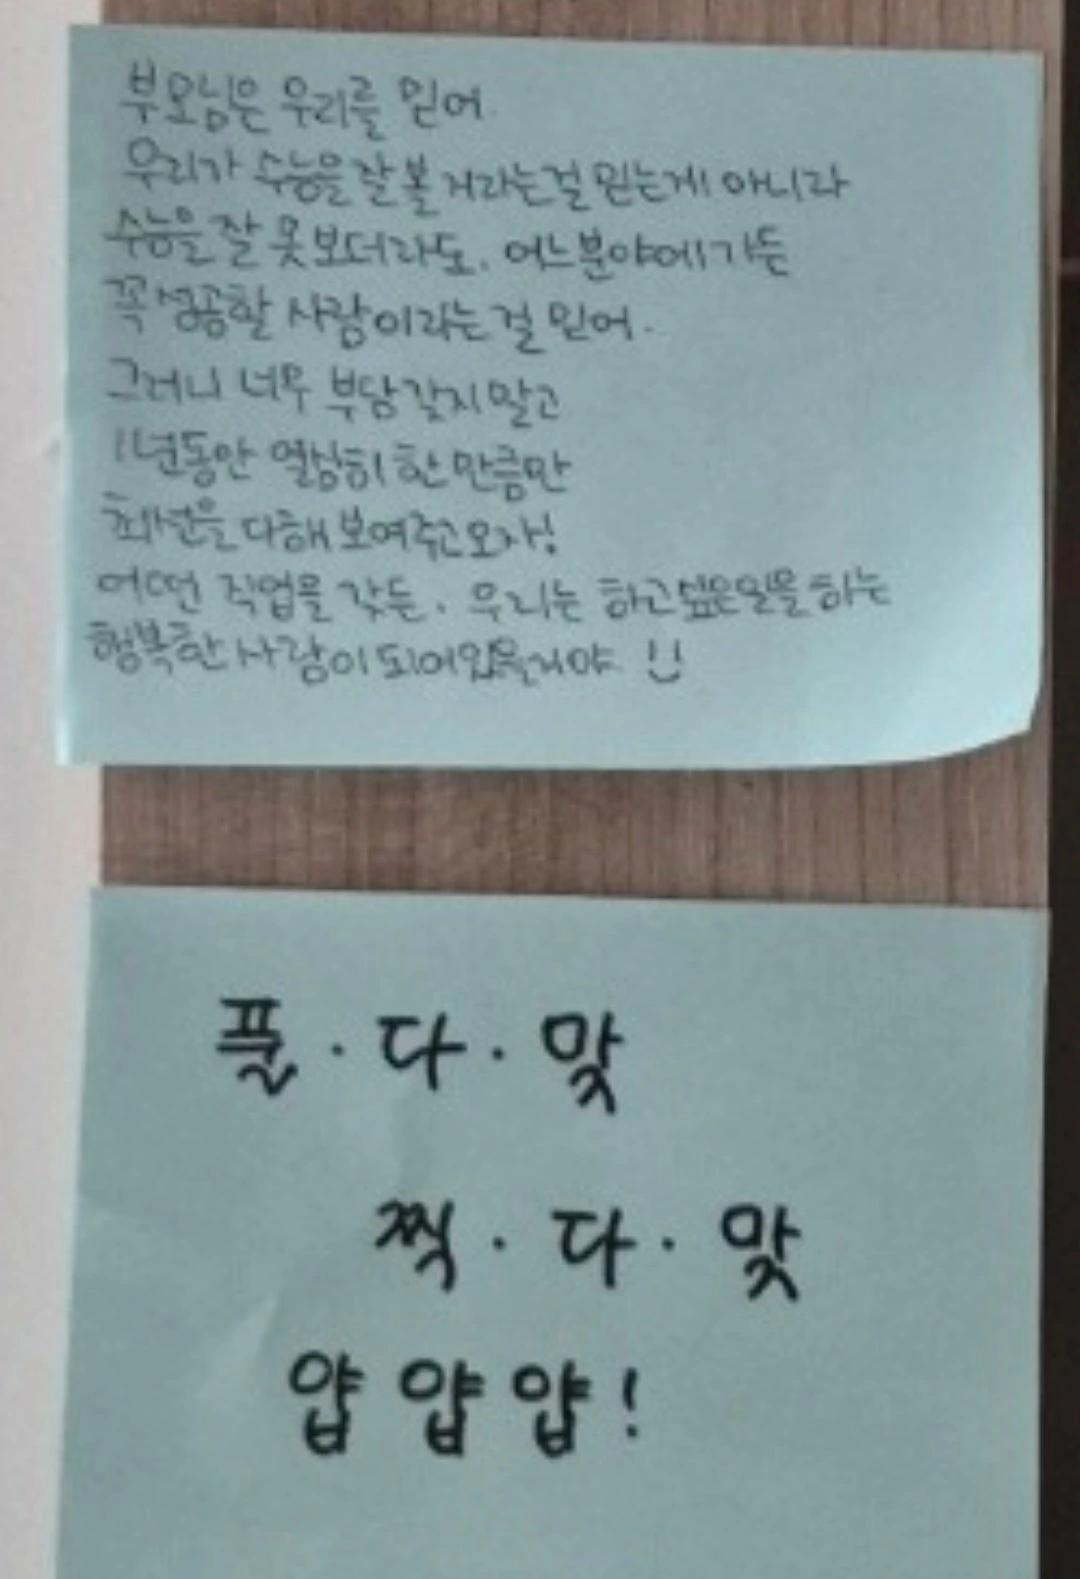 부모님은 우리를 믿어.
우리가 수능을 잘 볼 거라는걸 믿는게 아니라
수능을 잘 못 보더라도, 어느분야에 가든
꼭 성공할 사람이라는 걸 믿어.
그러니 너무 부담 갖지 말고
1년동안 열심히 한 만큼만
최선을 다해 보여주고 오자!
어떤 직업을 갖든, 우리는 하고싶은일을 하는
행복한 사람이 되어있을거야 :)
풀·다·맞
찍·다·맞
얍 얍 얍!